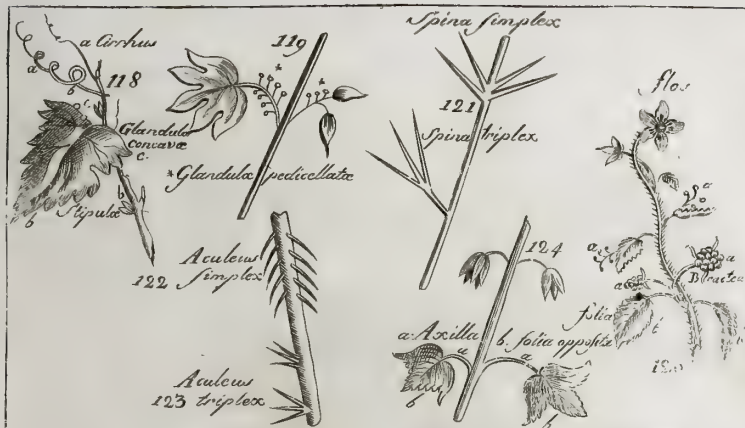 a Cirrhus
a
b
118
c
Glandulæ
concavæ
c.
b
b Stipulæ
119
*
*
* Glandulæ pedicellatæ
Spina Simplex
121
Spina triplex
flos
a
a
a
a
Bractea
folia
122
Aculeus
Simplex
Aculeus
123 triplex
124
a. Axilla
b. folia opposita
a
a
b
b